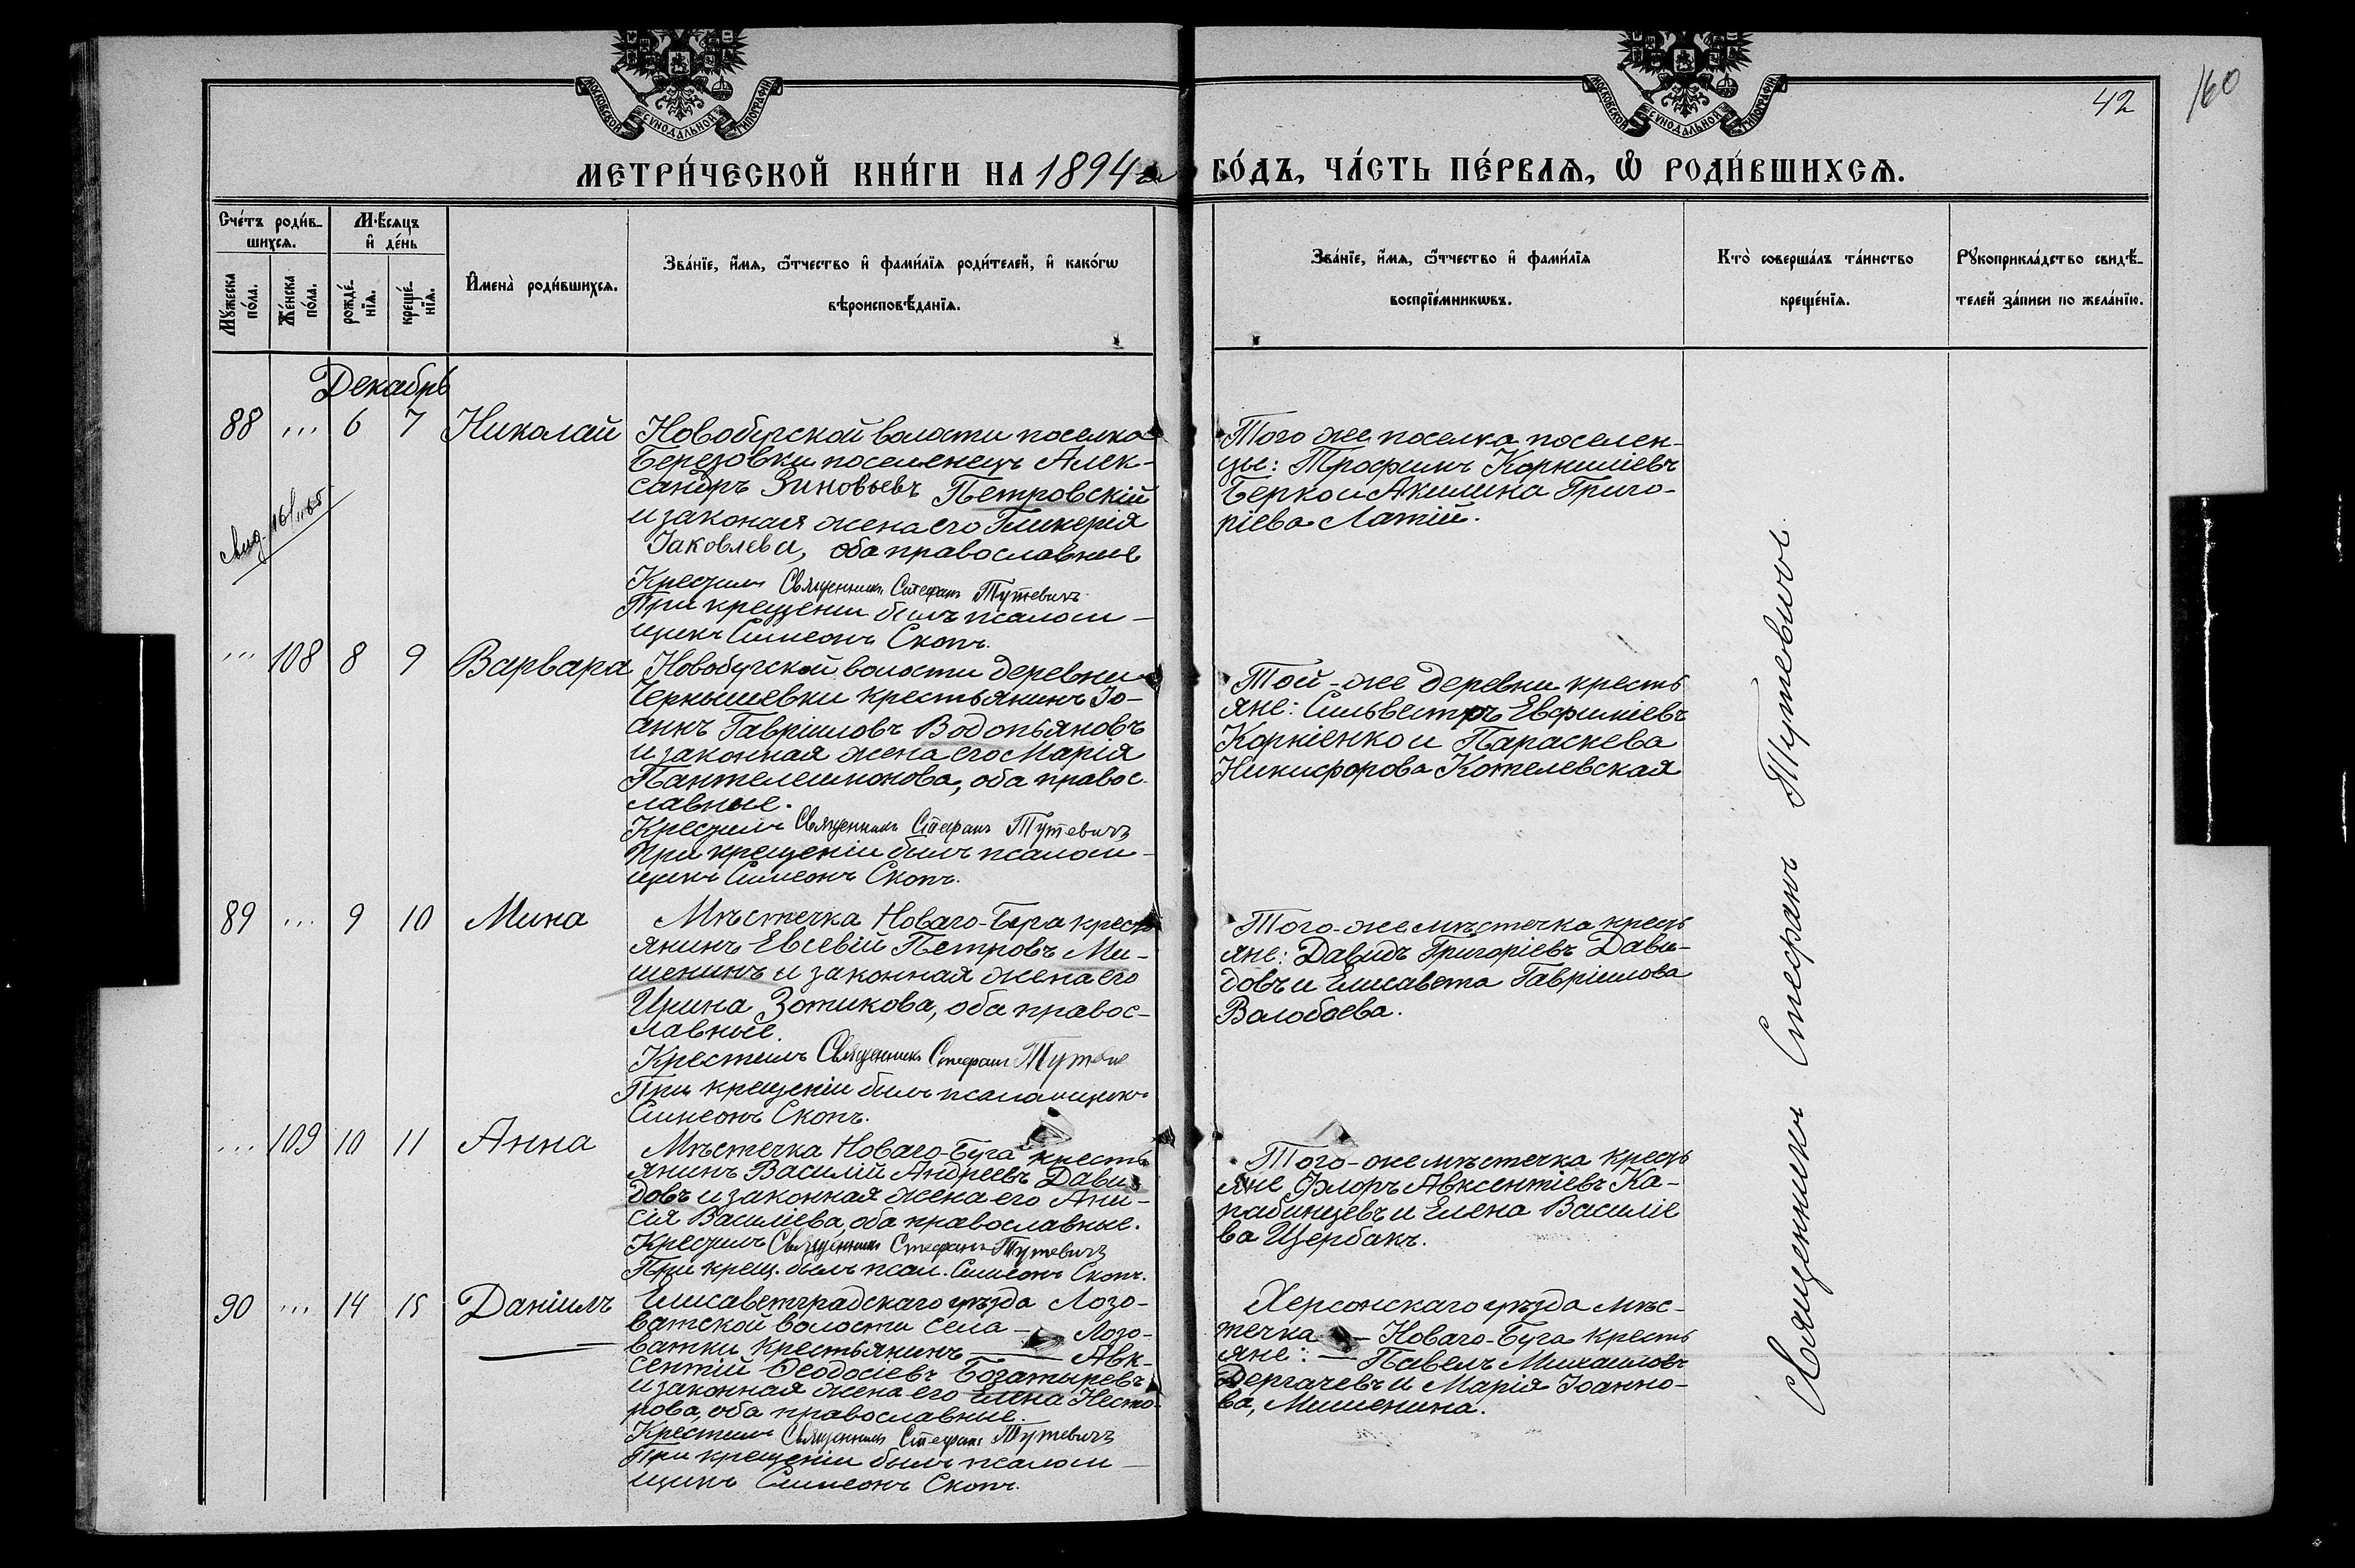 МОСКОВСКОЙ СѴНОДАЛЬНОЙ ТИПОГРАФІИ
МОСКОВСКОЙ СѴНОДАЛЬНОЙ ТИПОГРАФІИ
42
160
МЕТРИ́ЧЕСКОЙ КНИ́ГИ НА 1894 й ГО́ДЪ, ЧА́СТЬ ПЕ́РВАѦ, Ѡ҆ РОДИ́ВШИХСѦ.
Сче́тъ роди́в-
шихсѧ.
Мꙋ́жеска по́ла.
Же́нска по́ла.
Мѣ́сѧцъ
и҆ де́нь
рожде́-
нїѧ.
креще́-
нїѧ.
И҆мена̀ роди́вшихсѧ.
Зва́нїе, и҆́мѧ, ѻ҆́тчество и҆ фами́лїѧ роди́телей, и҆ како́гѡ
вѣроисповѣ́данїѧ.
Зва́нїе, и҆́мѧ, ѻ҆́тчество и҆ фами́лїѧ
воспрїе́мникѡвъ.
Кто̀ соверша́лъ та́инство
креще́нїѧ.
Рꙋкоприкла́дство свидѣ́-
телей за́писи по жела́нїю.
Декабрь
88 ... 6 7 Николай
Новобугской волости поселка
Березовки поселенецъ Алек-
сандръ Зиновьевъ Петровскій
и законая жена его Гликерія
Іаковлева, оба православные
Крестилъ Священникъ Стефанъ Тутевичъ
При крещеніи былъ псалом-
щикъ Симеонъ Скопъ.
Того же поселка поселен-
цы: Трофимъ Корниліевъ
Берко и Акилина Григо-
ріева Латій.
... 108 8 9 Варвара
Новобугской волости деревни
Чернышевки крестьянинъ Іо-
аннъ Гавріиловъ Водопьяновъ
и законная жена его Марія
Пантелеимонова, оба правос-
лавные.
Крестилъ Священникъ Стефанъ Тутевичъ
При крещеніи былъ псалом-
щикъ Симеонъ Скопъ.
Той-же деревни кресть
яне: Сильвестръ Евфиміевъ
Корніенко и Параскева
Никифорова Котелевская
89 ... 9 10 Мина
Мѣстечка Новаго-Буга кресть
янинъ Евсевій Петровъ Ми-
шенинъ и законная жена его
Ирина Зотикова, оба правос-
лавные.
Крестилъ Священникъ Стефанъ Тутевич
При крещеніи былъ псаломщикъ
Симеонъ Скопъ.
Того-же мѣстечка кресть
яне: Давидъ Григоріевъ Дави-
довъ и Елисавета Гавріилова
Волобоева.
... 109 10 11 Анна
Мѣстечка Новаго-Буга кресть
янинъ Василій Андреевъ Дави-
довъ и законная жена его Ани-
сія Василіева, оба православные.
Крестилъ Священникъ Стефанъ Тутевичъ
При крещ. былъ псал. Симеонъ Скопъ.
Того-же мѣстечка кресть
яне Флоръ Авксентіевъ Ка-
пабинцевъ и Елена Василіе
ва Щербакъ.
90 ... 14 15 Даніилъ
Елисаветградскаго уѣзда Лозо-
ватской волости села — Лозо-
ватки крестьянинъ — Авк-
сентій Ѳеодосіевъ Богатыревъ
и законная жена его Елена Несто-
рова, оба православные.
Крестилъ Священникъ Стефанъ Тутевичъ
При крещеніи былъ псалом-
щикъ Симеонъ Скопъ.
Херсонскаго уѣзда мѣс-
течка — Новаго-Буга кресть
яне: — Павелъ Михаиловъ
Дергачевъ и Марія Іоанно-
ва, Мишенина.
Священникъ Стефанъ Тутевичъ.